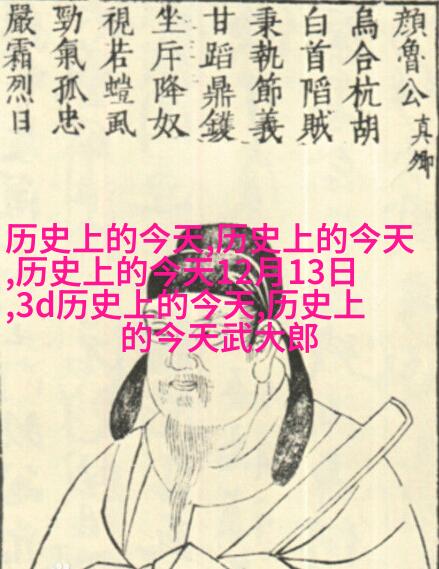 顔魯公真卿
烏合杭胡
白首陷賊
秉執節義
甘蹈鼎鑊
坐斥降奴
視若螘虱
勁氣孤忠
嚴霜烈日
历史上的今天,历史上的今天
,历史上的今天12月13日
,3d历史上的今天,历史上
的今天武大郎